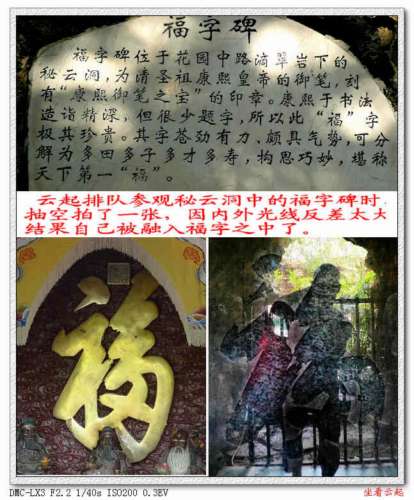 福字碑
福字碑位于花园中路滴翠岩下的
秘云洞,为清圣祖康熙皇帝的御笔,刻
有“康熙御笔之宝”的印章。康熙于书法
造诣精深,但很少题字,所以此“福”字
极其珍贵。其字苍劲有力、颇具气势,可分
解为多田多子多才多寿,构思巧妙,堪称
天下第一“福”。
云起排队参观秘云洞中的福字碑时,
抽空拍了一张,因内外光线反差太大
结果自己被融入福字之中了。
福
DMC-LX3 F2.2 1/40s ISO200 0.3EV
坐看云起